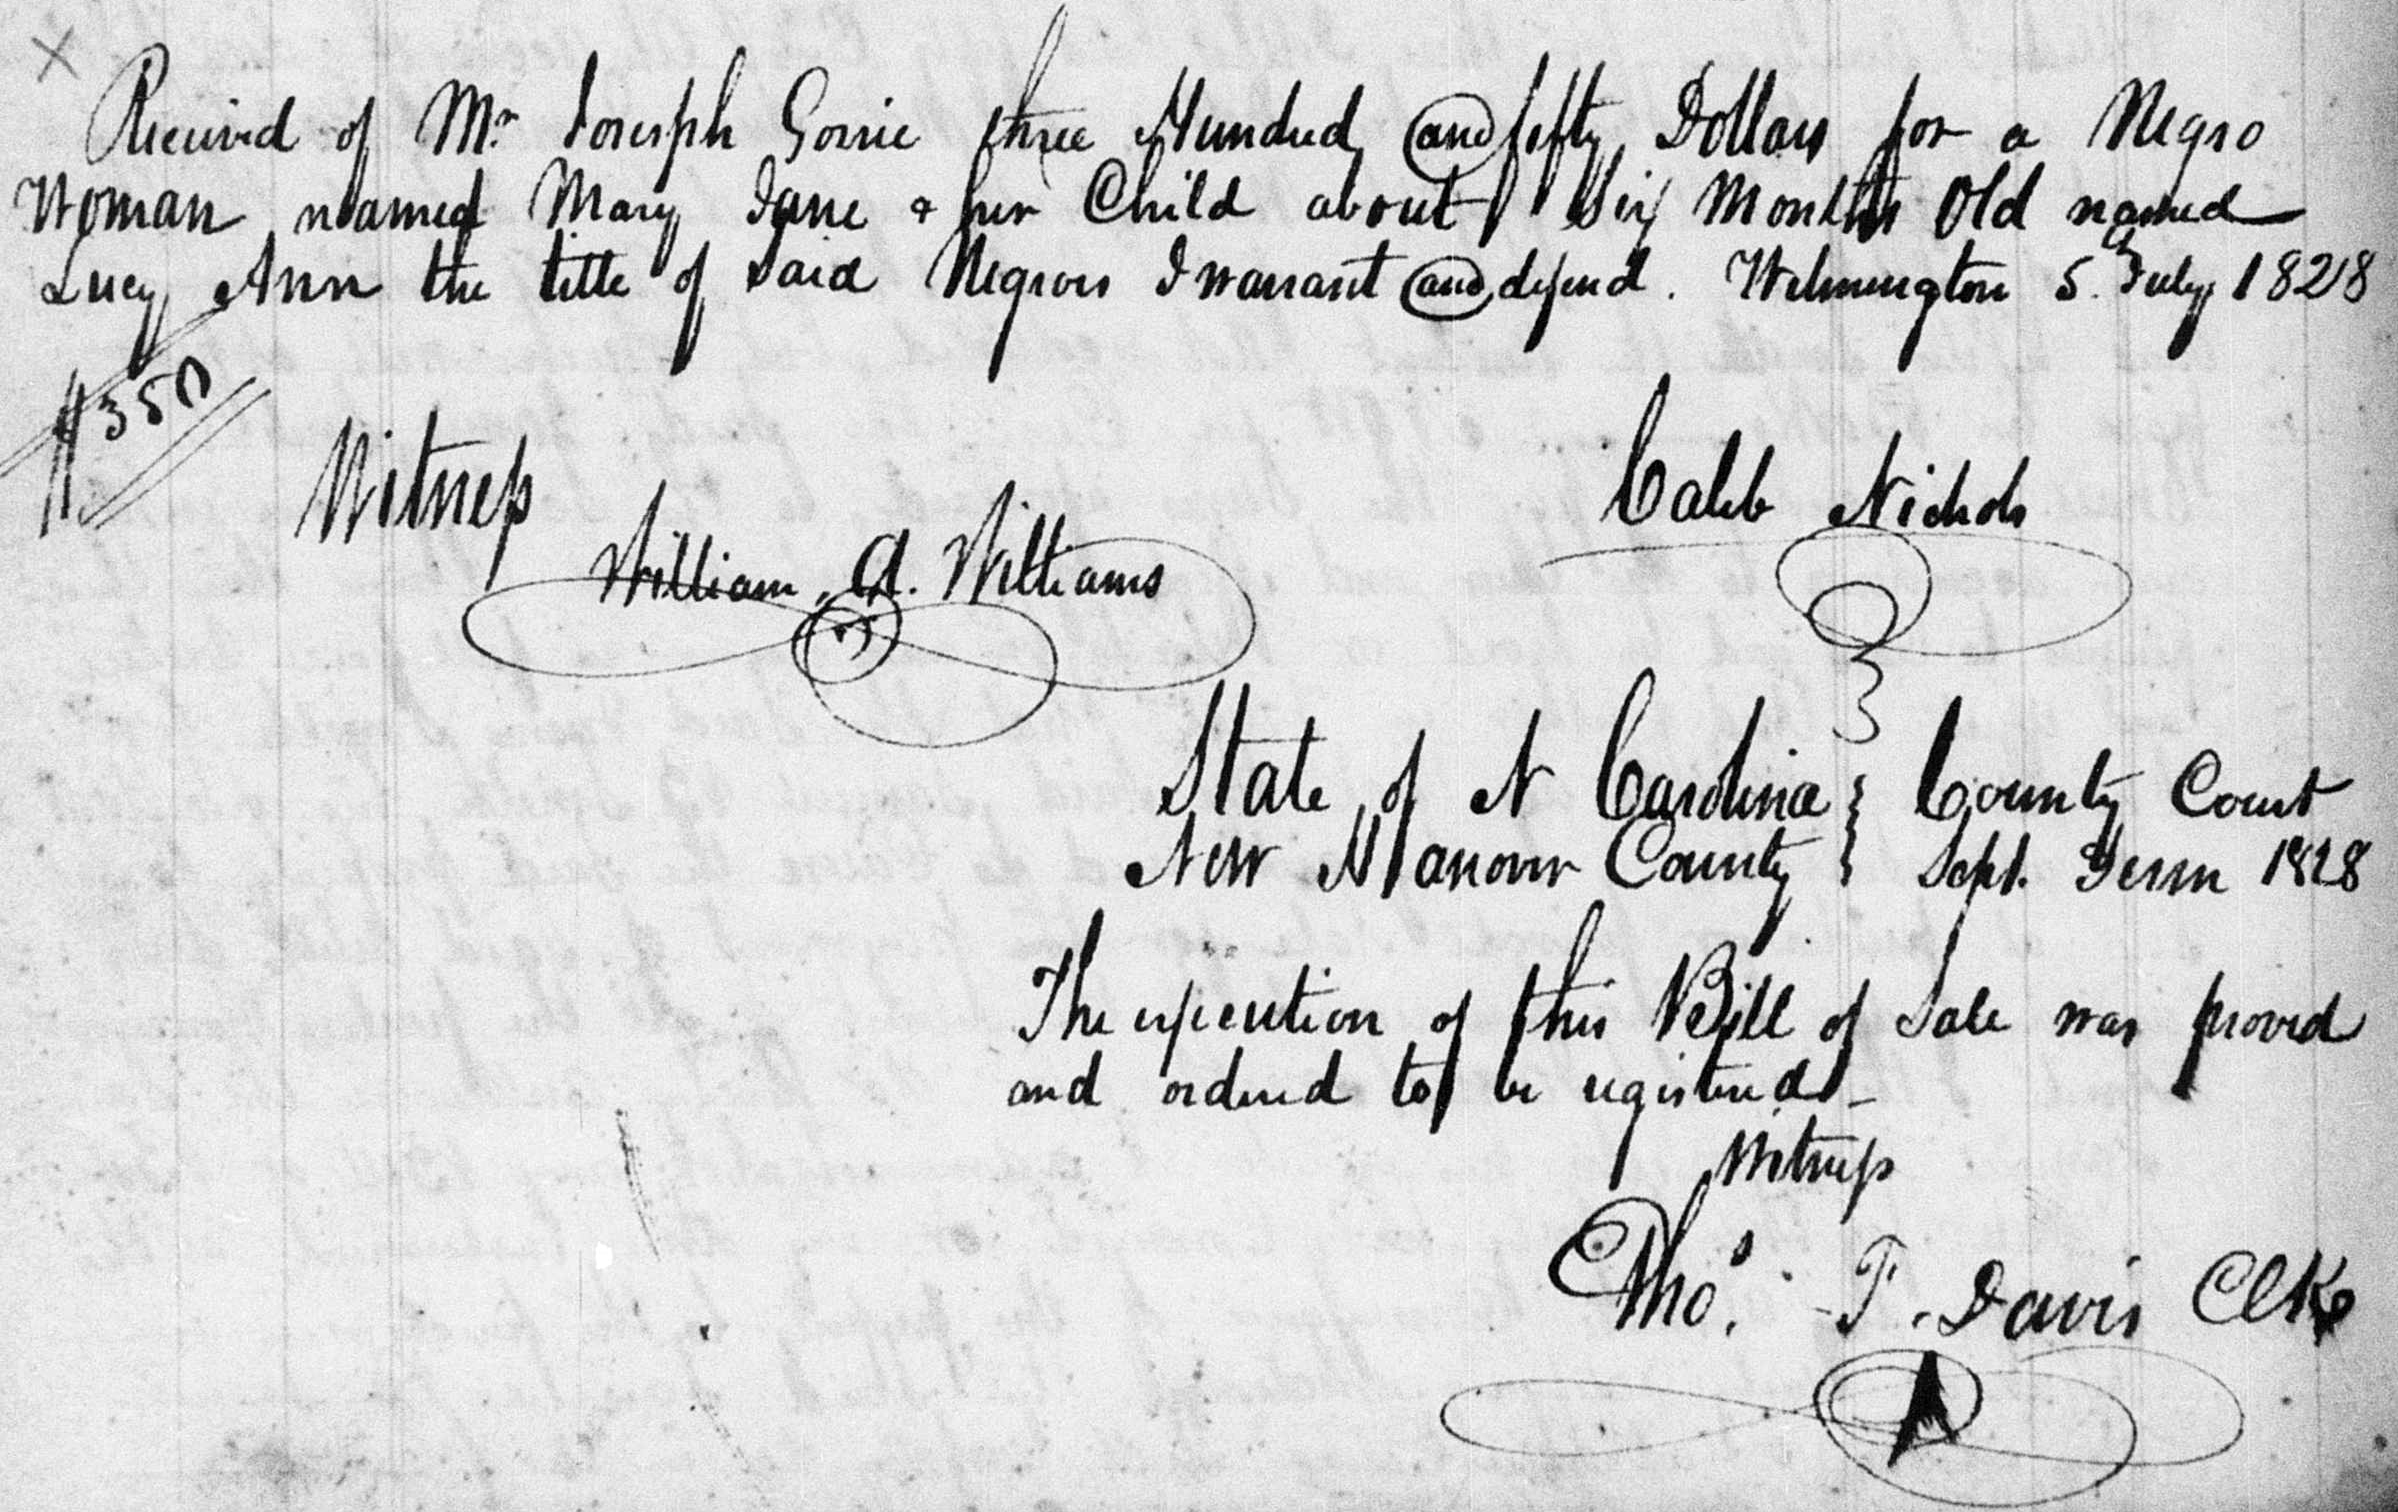 Received of Mr. Joseph Gorrie three Hundred and fifty Dollars for a Negro
Woman named Mary Jane & her Child about Six Months Old named
Lucy Ann the title of said Negroes I warrant and defend. Wilmington 5th July 1828
$350
Caleb Nichols
Witness
William. A. Williams
State of N Carolina } County Court
New Hanover County } Sept. Term 1828
The execution of this Bill of Sale was proved
and ordered to be registered -
Witness
Thos. T. Davis Clk